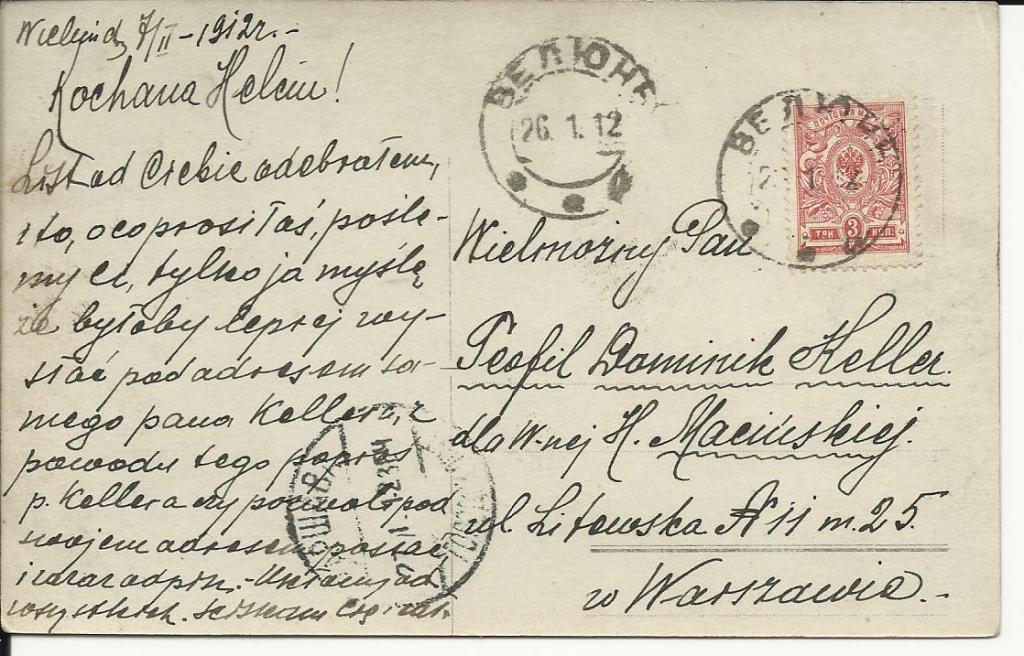 7/II - 1912r. -
Kochana Helciu!
List od Ciebie odebrałem,
i to, o co prosiłaś, pośle-
my Ci, tylko ja myślę
że byłoby lepiej wy-
słać pod adresem sa-
mego pana Kellera, z
powodu tego popros
p. Kellera czy pozwoli pod
swojem adresem posłać
i zaraz odpisz. - Ukłony od
wszystkich. Ściskam Cię
ВЕЛЮНЬ
26.1.12
ВЕЛЮНЬ
ТРИ 3 КОП.
Wielmożny Pan
Teofil Dominik Keller.
dla W-nej H. Macińskiej.
ul Litewska N 11 m. 25.
w Warszawie. -